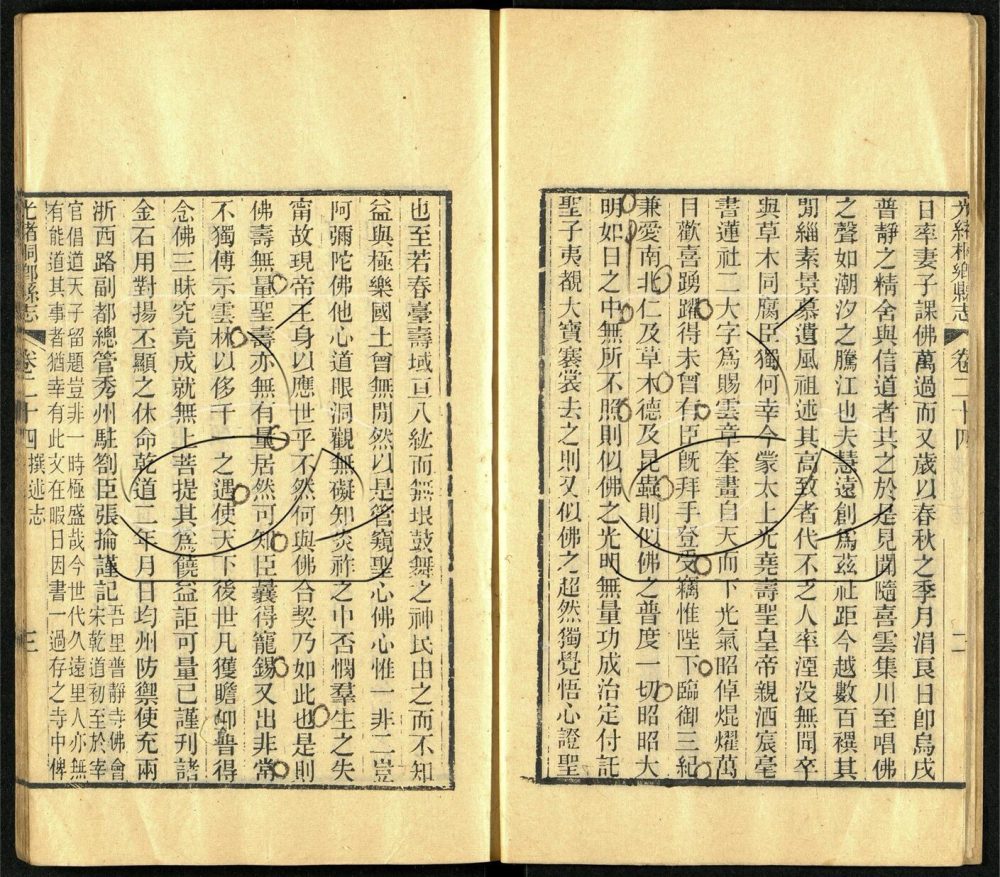 光緒桐鄉縣志 卷二十四 二
日率妻子課佛萬過而又歲以春秋之季月涓良日卽烏戌
普靜之精舍與信道者共之於是見聞隨喜雲集川至唱佛
之聲如潮汐之騰江也夫慧遠創爲茲社距今越數百禩其
閒緇素景慕遺風祖述其高致者代不乏人率湮没無聞卒
與草木同腐臣獨何幸今蒙太上光堯壽聖皇帝親洒宸毫
書蓮社二大字爲賜雲章奎畫自天而下光氣昭倬焜燿萬
目歡喜踴躍得未曾有臣旣拜手登受竊惟陛下臨御三紀
兼愛南北仁及草木德及昆蟲則似佛之普度一切昭昭大
明如日之中無所不照則似佛之光明無量功成治定付託
聖子夷覩大寶褰裳去之則又似佛之超然獨覺悟心證聖
也至若春臺壽域亘八紘而無垠鼓舞之神民由之而不知
益與極樂國土曾無閒然以是管窺聖心佛心惟一非二豈
阿彌陀佛他心道眼洞觀無礙知炎祚之中否憫羣生之失
甯故現帝王身以應世乎不然何與佛合契乃如此也是則
佛壽無量聖壽亦無有量居然可知臣曩得寵錫又出非常
不獨傅示雲林以侈千一之遇使天下後世凡獲瞻仰普得
念佛三昧究竟成就無上菩提其爲饒益詎可量已謹刊諸
金石用對揚丕顯之休命乾道二年月日均州防禦使充兩
浙西路副都總管秀州駐劄臣張掄謹記 吾里普靜寺佛會
宋乾道初至於宰
官倡道天子留題豈非一時極盛哉今世代久遠里人亦無
有能道其事者猶幸有此文在暇日因書一過存之寺中俾
光緒桐鄉縣志 卷二十四 撰述志 三